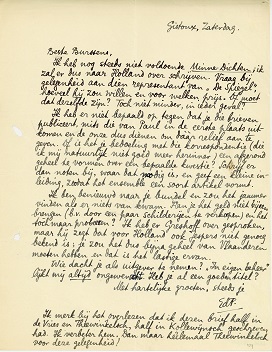 Gistoux, Zaterdag.
Beste Burssens,
Ik heb nog steeds niet voldoende Minne-Dichten; ik
zal er dus naar Holland over schrijven. Vraag bij
gelegenheid aan dien representant van „De Spiegel”
hoeveel hij zou willen en voor welken prijs. Of moet
dat derselfde zijn? Toch niet minder, in ieder geval?
Ik heb er niet bepaald op tegen dat je die brieven
publiceert, mits die van Paul in de eerste plaats uit-
komen en de onze dus dienen om daar relief aan te
geven. Of is het je bedoeling met die korrespondentie (die
ik mij natuurlijk niet goed meer herinner) een afgerond
geheel te vormen over een bepaalde kwestie?
dan noten bij, waar dat noodig is; en geef een kleine in-
leiding, zoodat het ensemble een soort artikel vormt.
Ik ben benieuwd naar je bundel en zou het jammer
vinden als er niets van kwam. Kan je het geld niet bijeen-
brengen (b.v. door een paar schilderijen te verkoopen) en het
toch maar probeeren? Ik heb er Greshoff over gesproken,
maar hij zegt dat voor Holland ook Jespers niet genoeg
bekend is; je zou het dus bijna geheel van Vlaanderen
moeten hebben en dat is het lastige ervan.
Wie dacht je als uitgever te nemen? „In eigen beheer”
lijkt mij altijd ongewenscht. Heb je al een goeden titel?
Met hartelijke groeten, steeds je
EdP.
Ik merk bij het overlezen dat ik dezen brief half in
de Vries en Thewinkelsch, half in Kollewijnsch geschreven
had. Ik verbeter hem dan maar heelemaal Thewinkelsch
voor deze gelegenheid!